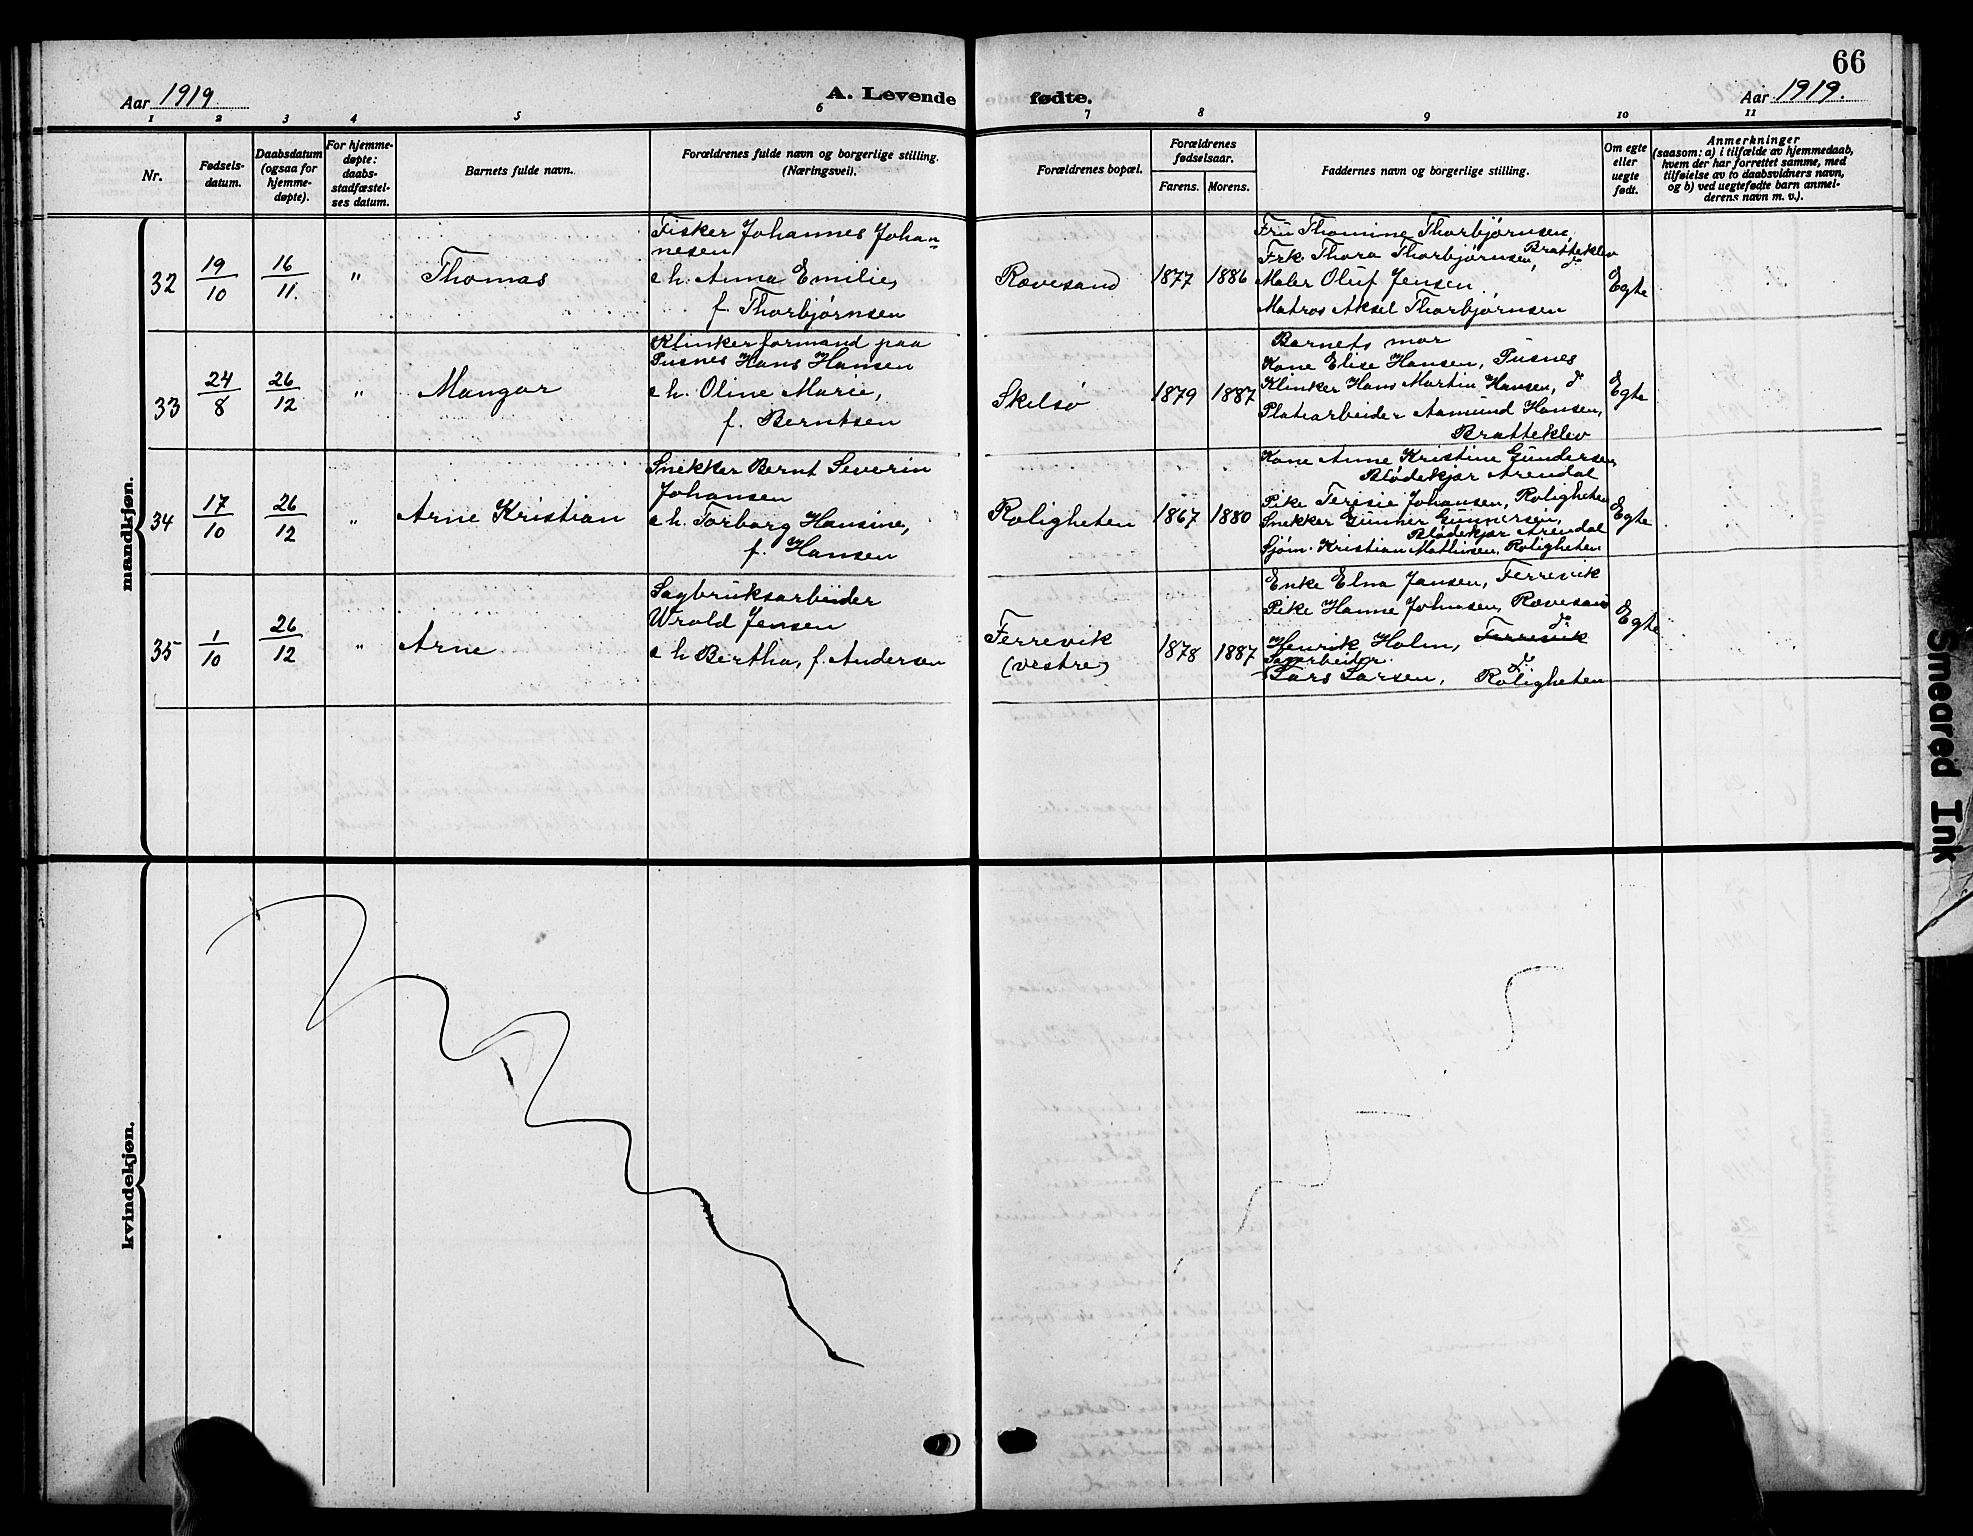 66
Aar 1919.
A. Levende
fødte.
Aar 1919.
1 2 3 4 5 6 7 8 9 10 11
Nr.
Fødsels-
datum.
Daabsdatum
(ogsaa for
hjemme-
døpte).
For hjemme-
døpte:
daabs-
stadfæstel-
ses datum.
Barnets fulde navn.
Forældrenes fulde navn og borgerlige stilling.
(Næringsvei).
Forældrenes bopæl.
Forældrenes
fødselsaar.
Farens. Morens.
Faddernes navn og borgerlige stilling.
Om egte
eller
uegte
født.
Anmerkninger
(saasom: a) i tilfælde av hjemmedaab,
hvem der har forrettet samme, med
tilføielse av to daabsvidners navn,
og b) ved uegtefødte barn anmel-
derens navn m. v.).
mandkjøn.
32
19/10
16/11.
"
Thomas
Fisker Johannes Johan-
nesen
e h. Anna Emilie,
f. Thorbjørnsen
Rævesand
1877
1886
Fru Thomine Thorbjørnsen,
Bratteklev
Frk Thora Thorbjørnsen, do
Maler Oluf Jensen
Matros Aksel Thorbjørnsen
Egte
33
24/8
26/12
"
Mangor
Klinkerformand paa
Pusnes Hans Hansen
e h. Oline Marie,
f. Berntsen
Skilsø
1879
1887
Barnets mor
Kone Elise Hansen, Pusnes
Klinker Hans Martin Hansen, do
Platearbeider Aamund Hansen,
Bratteklev
Egte
34
17/10
26/12
"
Arne Kristian
Snekker Bernt Severin
Johansen
e h. Torborg Hansine,
f. Hansen
Roligheten
1867
1880
Kone Anne Kristine Gundersen,
Blødekjær Arendal
Pike Teresie Johansen, Roligheten
Snekker Gunner Gunnersen,
Blødekjær Arendal
Sjøm. Kristian Mathisen, Roligheten
Egte
35
1/10
26/12
"
Arne
Sagbruksarbeider
Wrold Jensen
e h Bertha, f. Andersen
Ferrevik
(vestre)
1878
1887
Enke Elna Jansen, Ferrevik
Pike Hanne Johnsen, Rævesand
Henrik Holm, Ferrevik do
Sagarbeider
Lars Larsen, do Roligheten
Egte
kvindekjøn.
Smeared Ink